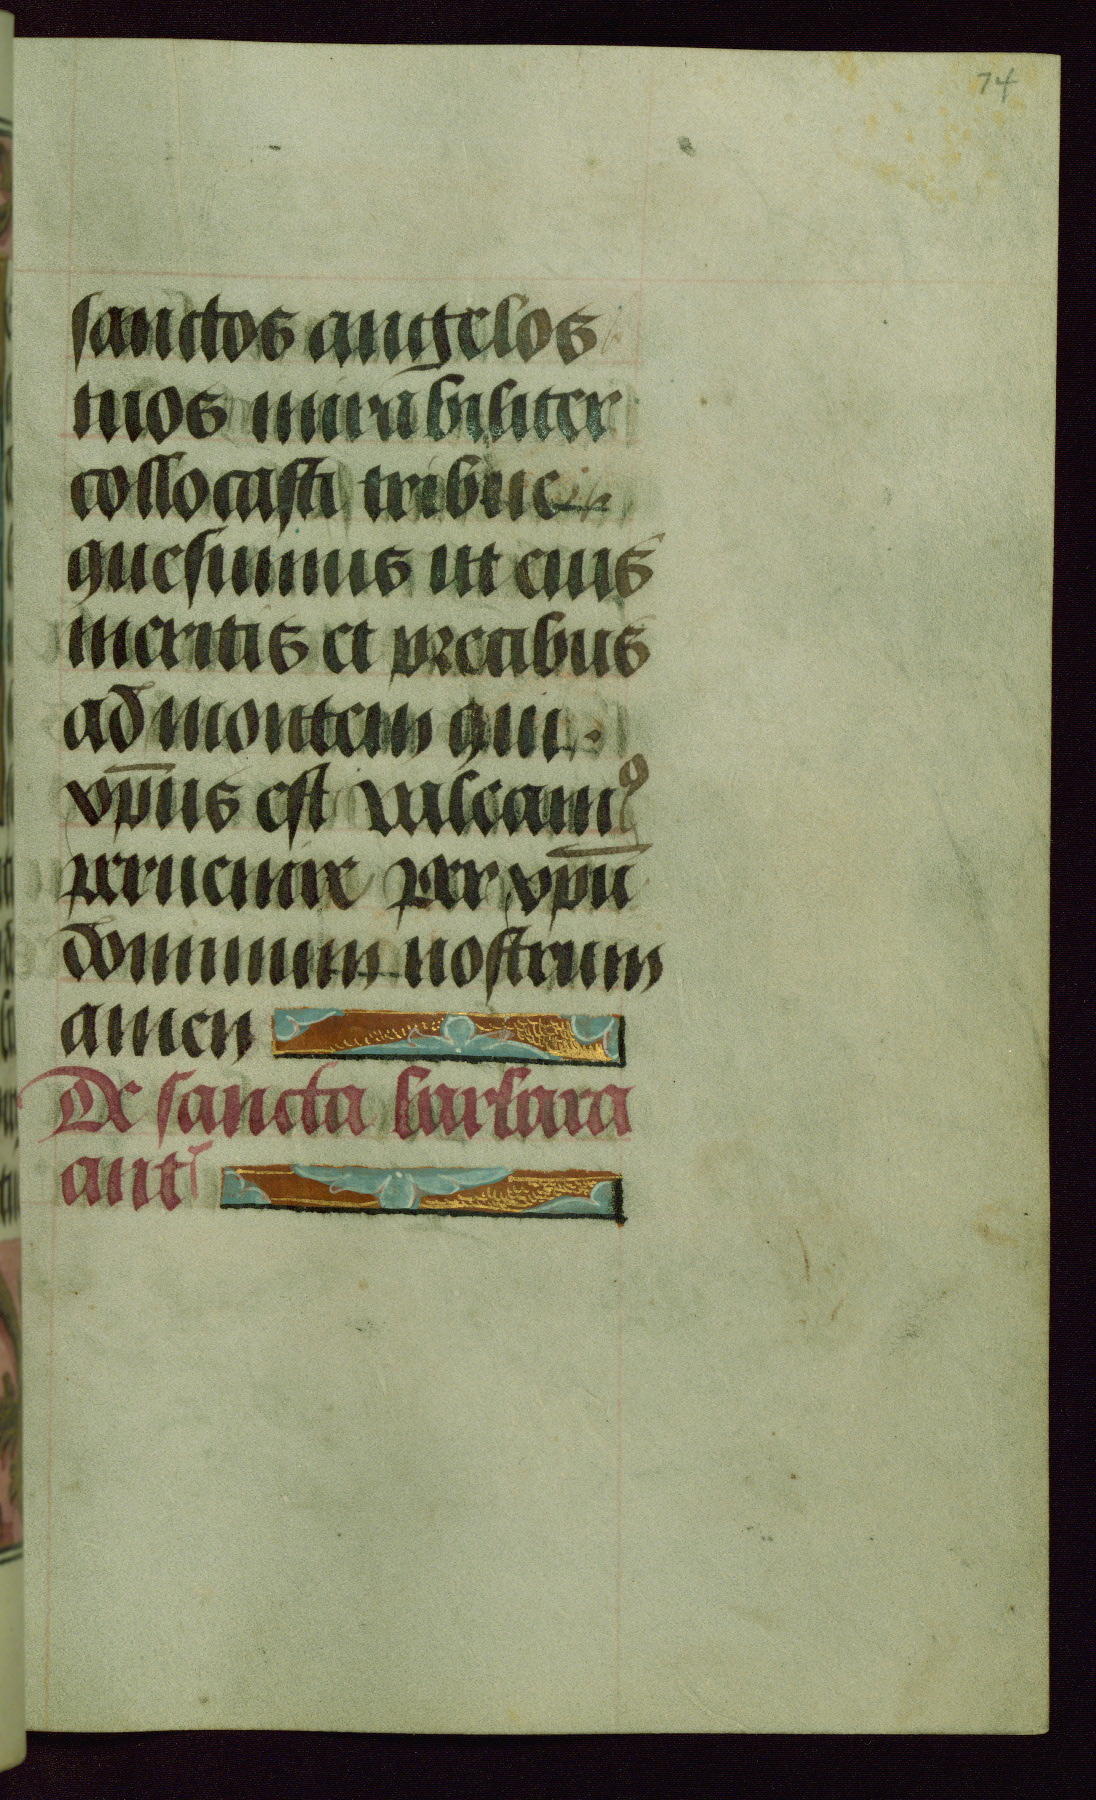 74
sanctos angelos
tuos mirabiliter
collocasti tribue
quesumus ut eius
meritis et precibus
ad montem qui
xp̄us est valeamꝰ
peruenire per xpū̄
dominum nostrum
amen
De sancta barbara
ant